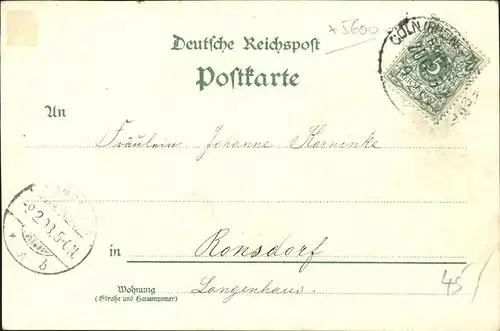 +5600
Deutsche Reichspost
Postkarte
CÖLN (RHEIN)
An
Fräulein Johanne
in Ronsdorf
Wohnung Langenhaus.
(Straße und Hausnummer)
45